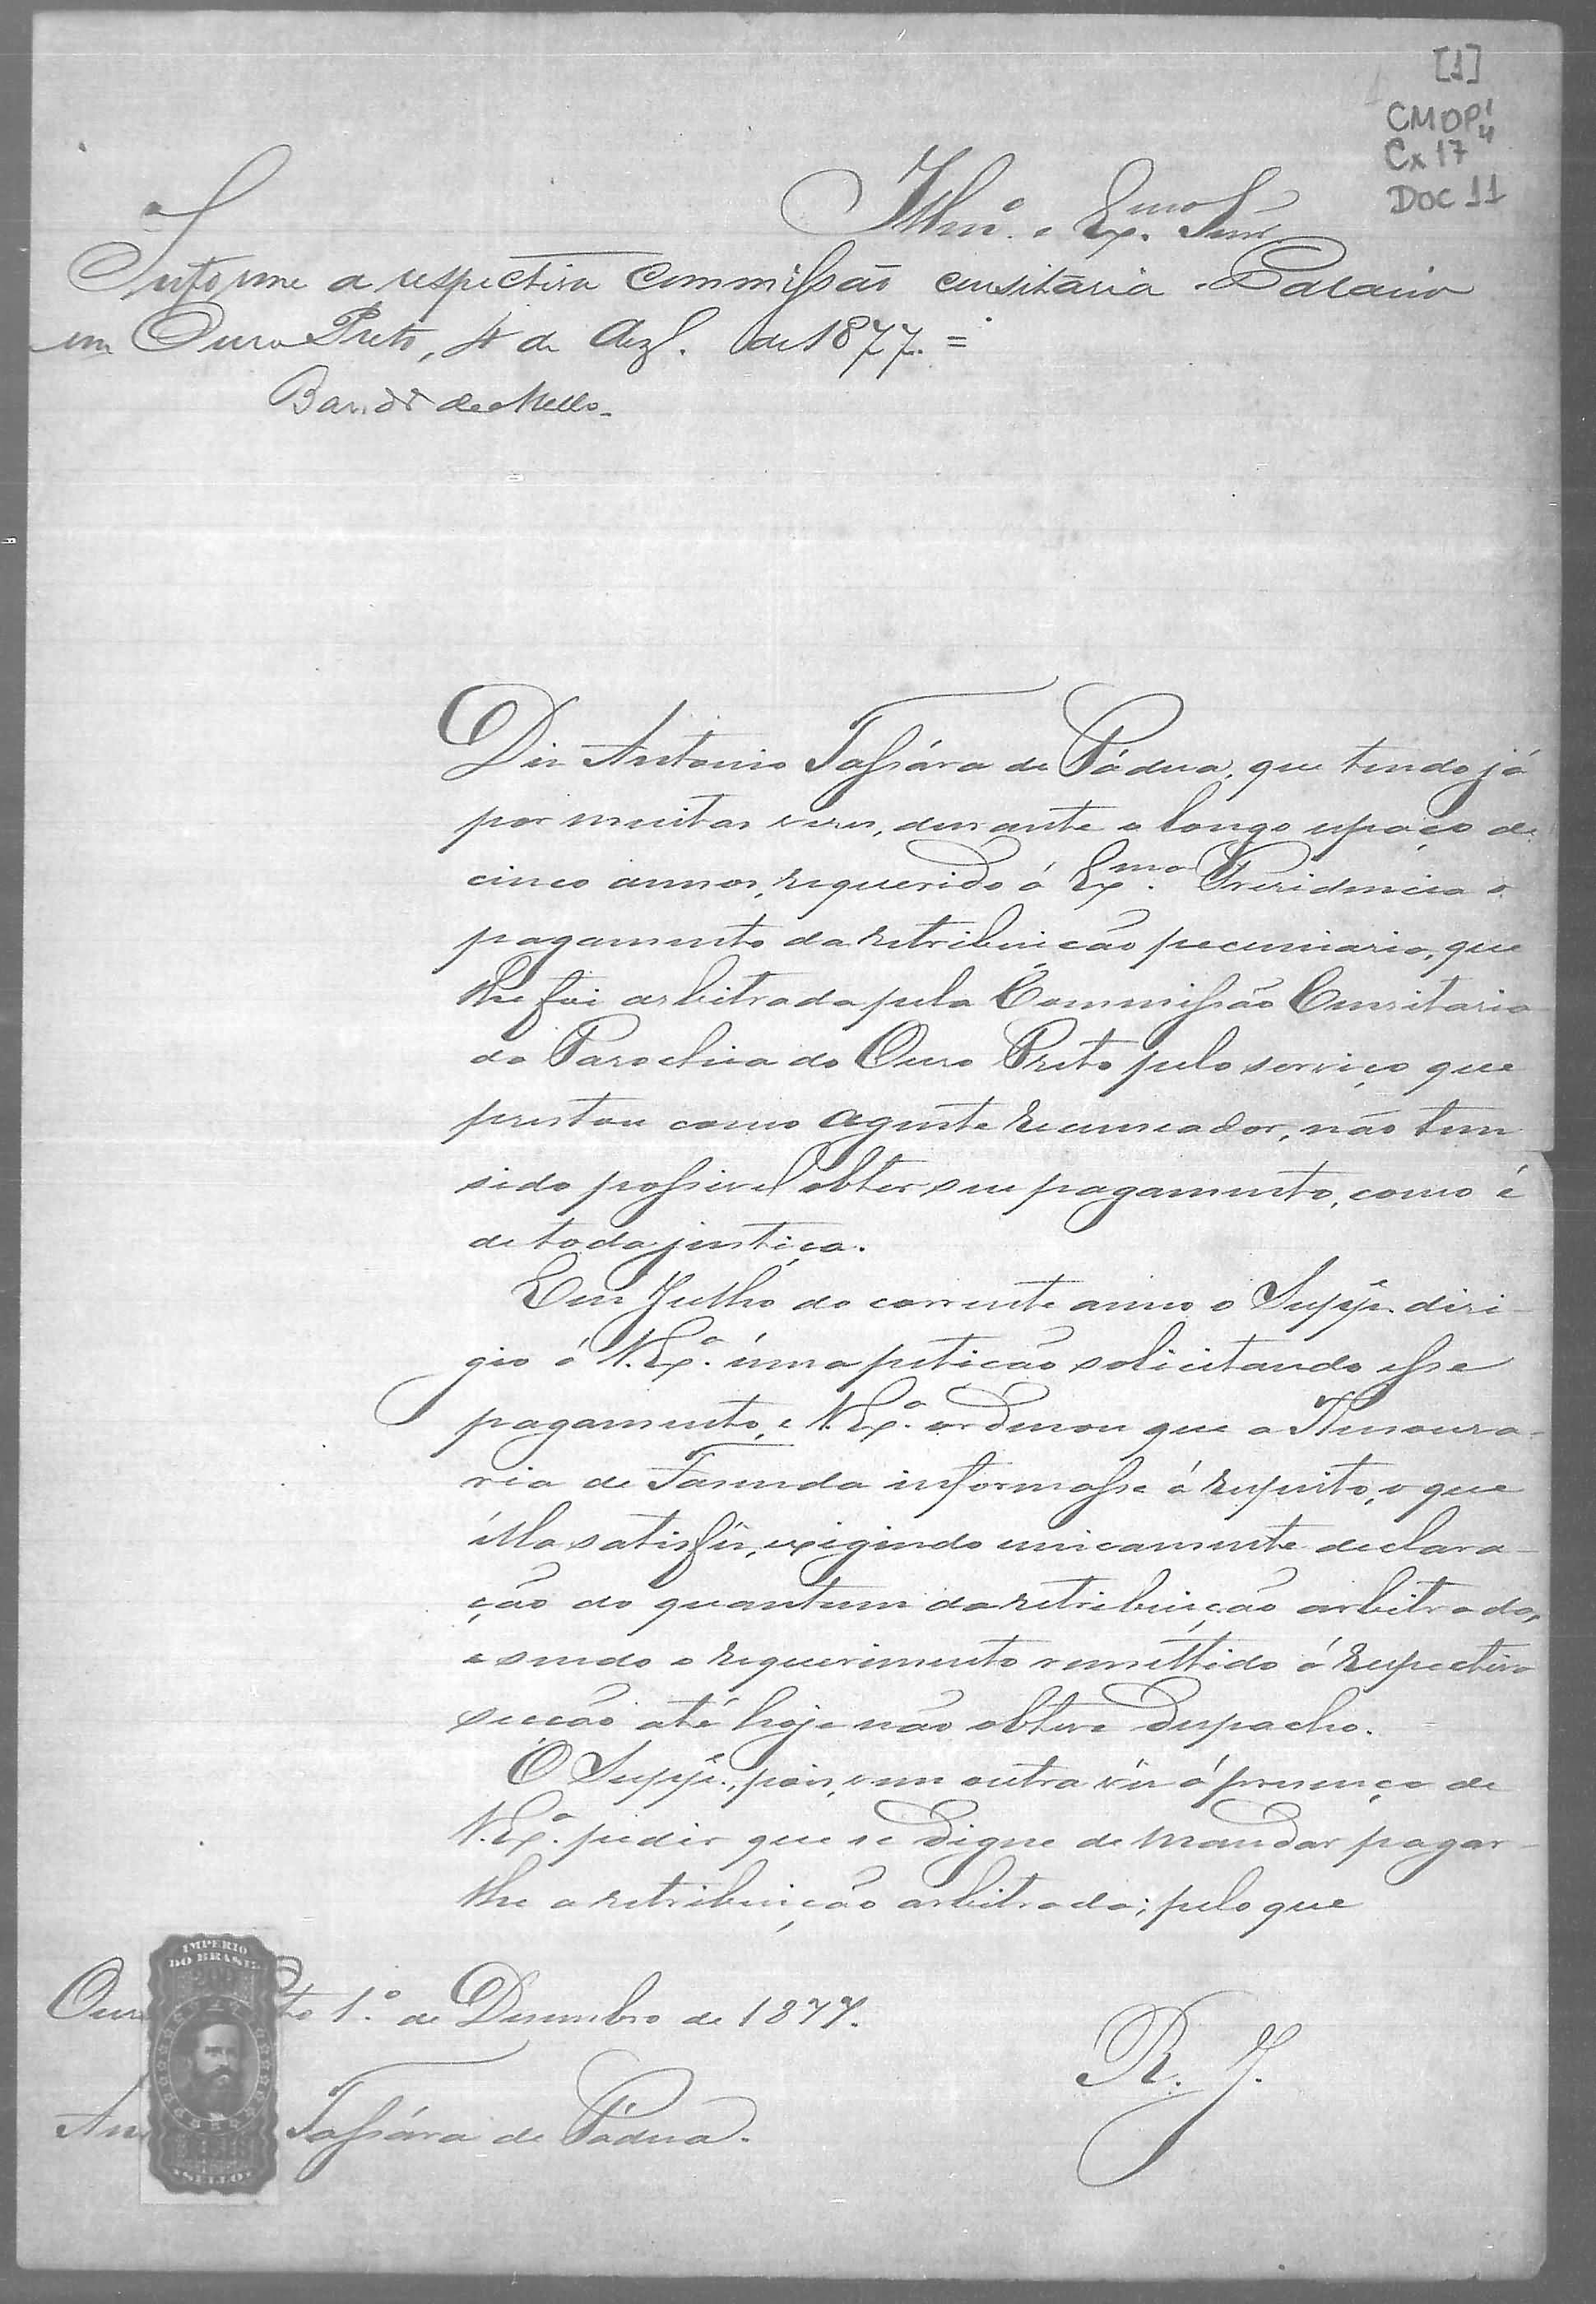 [1]
CMOP
Cx 17
DOC 11
Illmº. e Exmo. Snr
Informe a respectiva Commissão censitaria. Palacio
em Ouro Preto, 4 de dezº. de 1877. =
Bandª de Mello.
Diz Antonio Tassára de Pádua, que tendo já
por muitas vezes, durante o longo espaço de
cinco annos, requerido á Exma. Presidencia o
pagamento da retribuição pecuniaria, que
lhe foi arbitrada pela Commissão Censitaria
da Parochia do Ouro Preto pelo serviço que
prestou como agente recenseador, não tem
sido possivel obter seu pagamento, como é
de toda justiça.
Em Julho do corrente anno o Suppe. diri-
gio á V. Exª. uma petição solicitando esse
pagamento, e V. Exª. ordenou que a Thesoura-
ria de Fasenda informasse á respeito, o que
ella satisfez, exigindo unicamente declara-
ção do quantum da retribuição arbitrada,
e sendo o requerimento remettido á respectiva
secção até hoje não obteve despacho.
O Suppe., pois, vem outra vêz á presença de
V. Exª. pedir que se digne de mandar pagar-
lhe a retribuição arbitrada; pelo que
IMPERIO
DO BRASIL
200
SELLO
Ouro Preto 1º. de Desembro de 1877.
R. J.
An Tassára de Pádua.